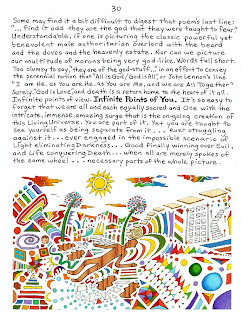 30
Some may find it a bit difficult to digest that poem's last line:
"... find it odd they are the god that they were taught to fear."
Understandable, if one is picturing the classic powerful yet
benevolent male authoritarian overlord with the beard
and the doves and the heavenly estate. Nor can we picture
our multitude of morons being very god-like. Words fall short.
Too clumsy to say, "they are of the god-stuff,..." in an effort to convey
the perennial notion that "All is God/God is All," or John Lennon's line,
"I am He.. as You are He.. as You are Me, and We are All Together."
Surely, "God is Love," and death is a return home to the heart of it all.
Infinite points of view. Infinite Points of You. It's so easy to
forget that we are all and each equally sacred and One with the
intricate, immense, amazing surge that is the on-going creation of
this Living Universe. You are part of it. Yet you are taught to
see yourself as being separate from it... Ever struggling
against it... ever engaged in the impossible scenario of
Light eliminating Darkness... Good finally winning over Evil,
and Life conquering Death... when all are merely spokes of
the same wheel... necessary parts of the whole picture.